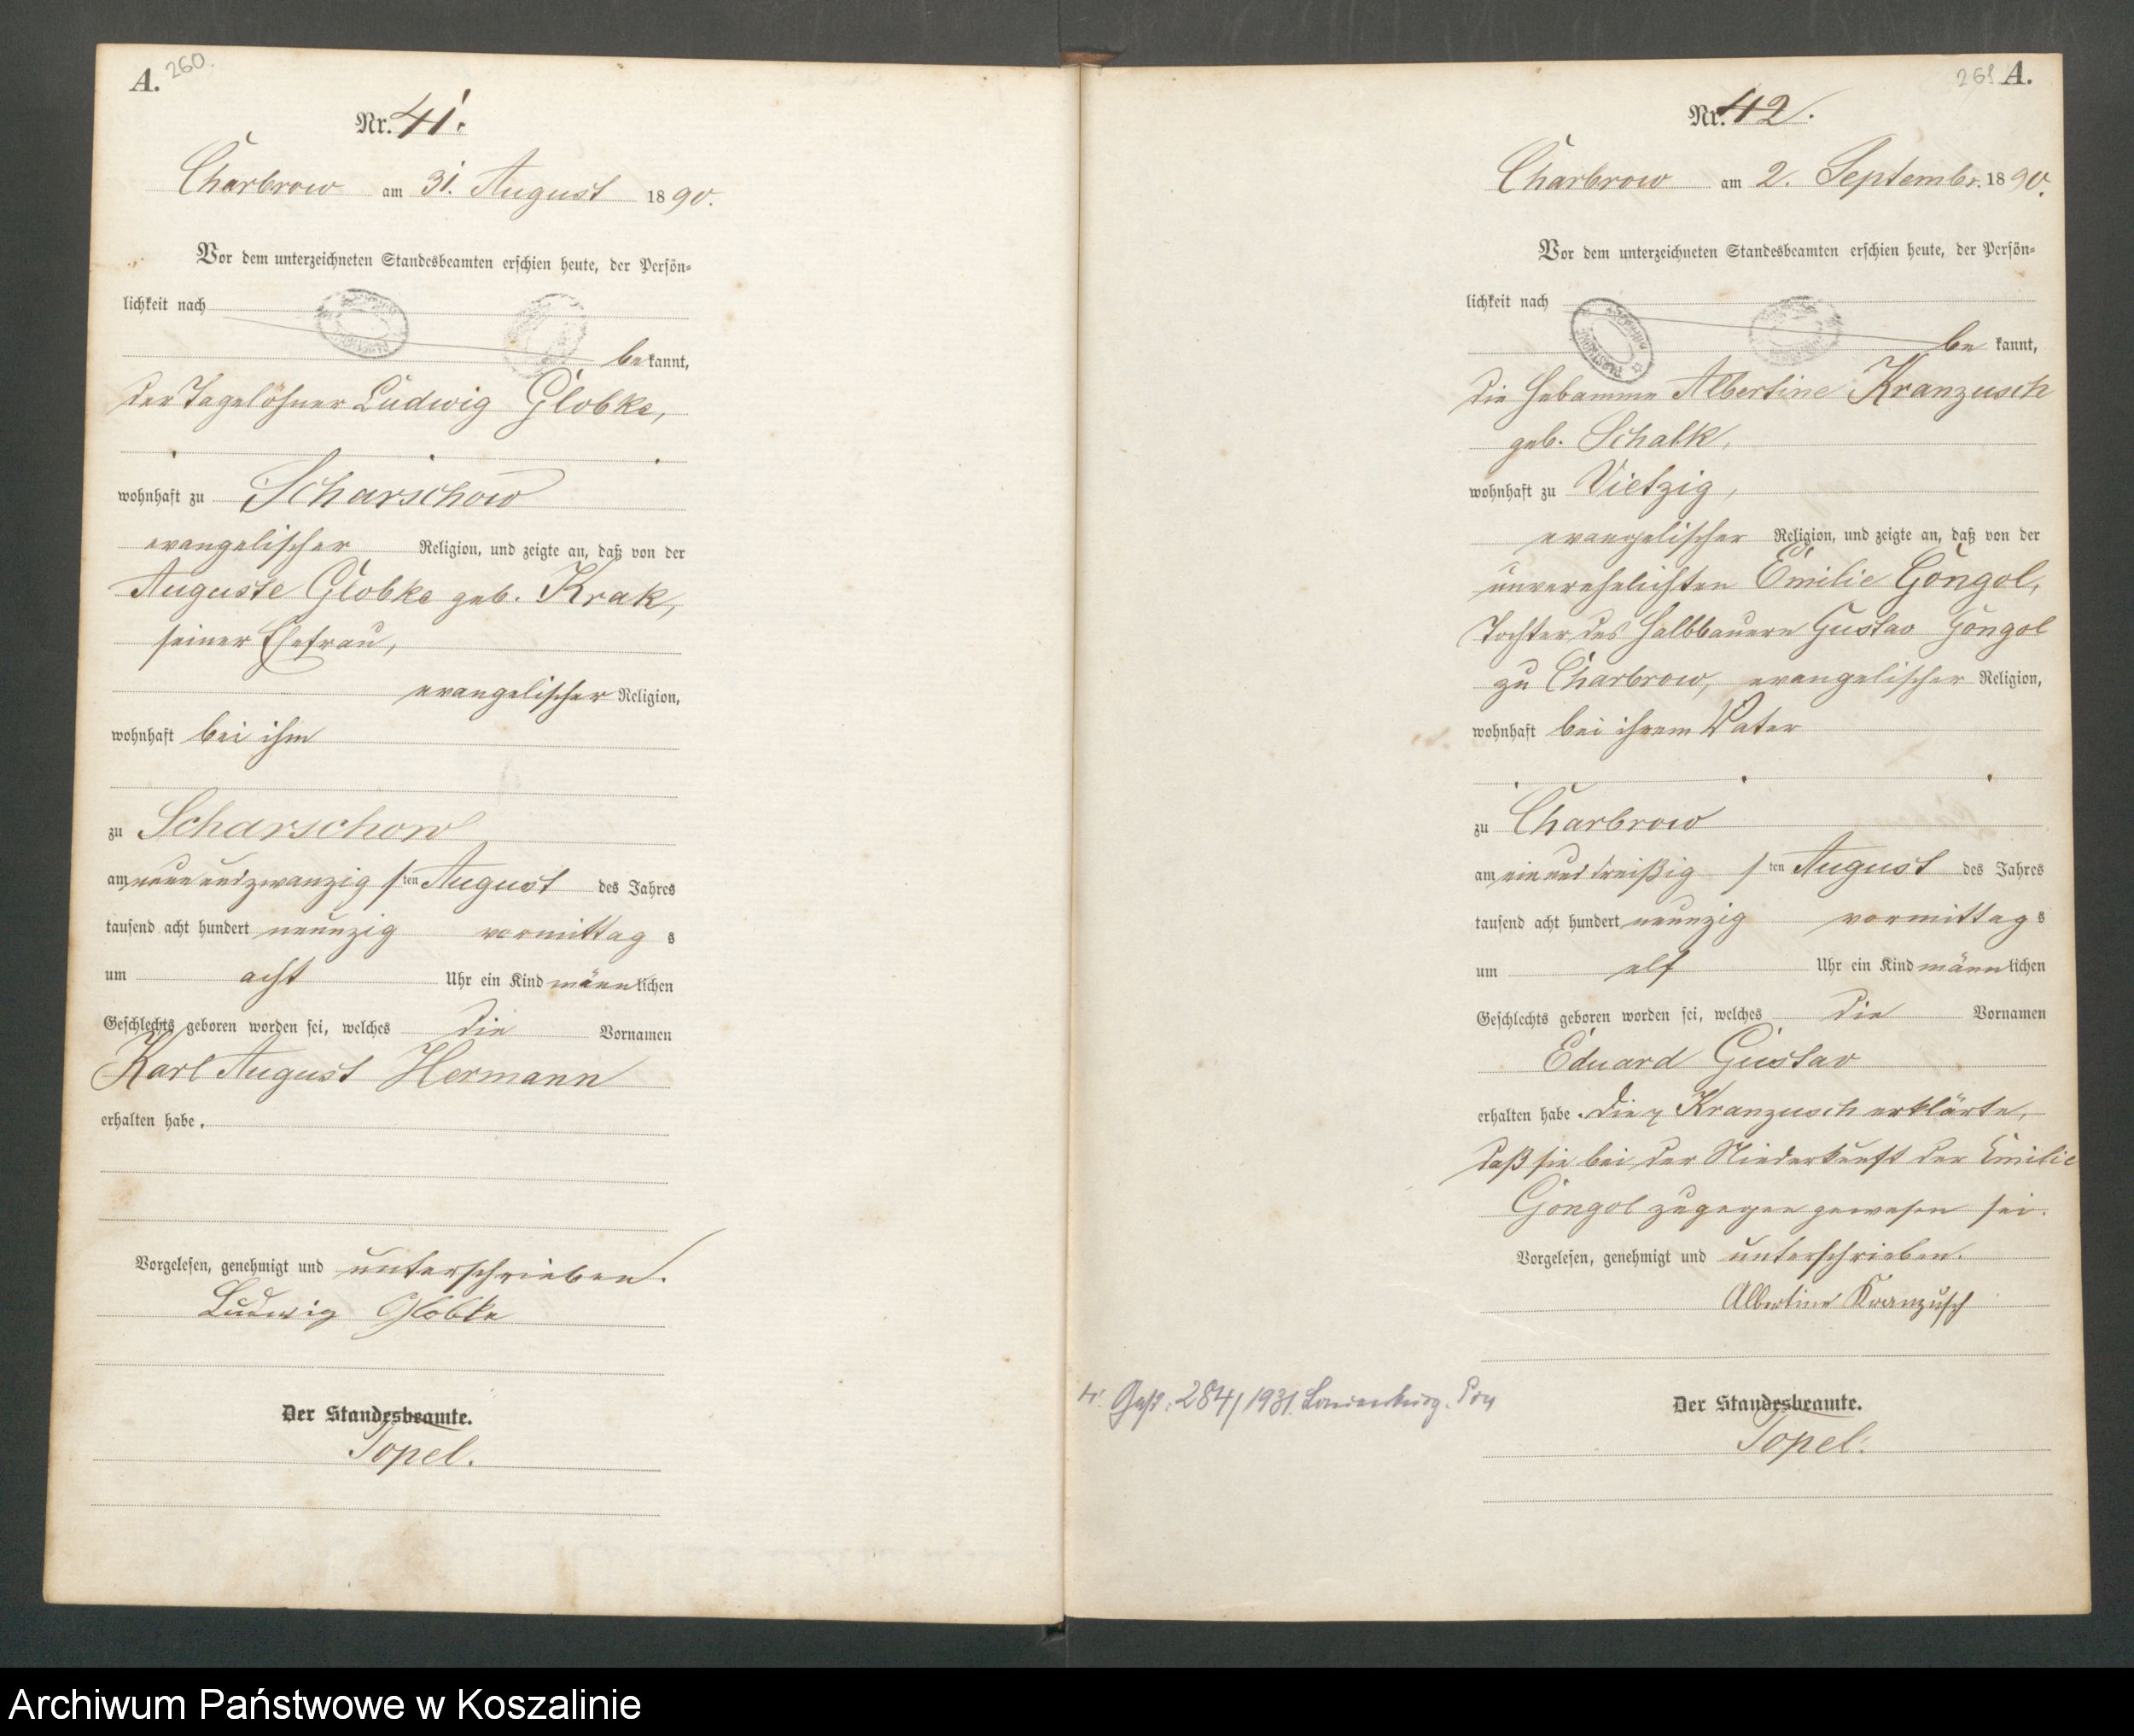 A. 260.
Nr. 41.
Charbrow am 31. August 1890.
Vor dem unterzeichneten Standesbeamten erschien heute, der Persön-
lichkeit nach
be kannt,
der Tagelöhner Ludwig Globke,
wohnhaft zu Scharschow
evangelischer Religion, und zeigte an, daß von der
Auguste Globke geb. Krak,
seiner Ehefrau,
evangelischer Religion,
wohnhaft bei ihm
zu Scharschow
am neunundzwanzig /ten August des Jahres
tausend acht hundert neunzig vormittag s
um acht Uhr ein Kind männlichen
Geschlechts geboren worden sei, welches die Vornamen
Karl August Hermann
erhalten habe.
Vorgelesen, genehmigt und unterschrieben.
Ludwig Globke
Der Standesbeamte.
Topel.
261 A.
Nr. 42.
Charbrow am 2. Septembr. 1890.
Vor dem unterzeichneten Standesbeamten erschien heute, der Persön-
lichkeit nach
be kannt,
die Hebamme Albertine Kranzusch
geb. Schalk,
wohnhaft zu Vietzig,
evangelischer Religion, und zeigte an, daß von der
unverehelichten Emilie Gongol,
Tochter des Halbbauern Gustav Gongol
zu Charbrow, evangelischer Religion,
wohnhaft bei ihrem Vater
zu Charbrow
am einunddreißig /ten August des Jahres
tausend acht hundert neunzig vormittag s
um elf Uhr ein Kind männlichen
Geschlechts geboren worden sei, welches die Vornamen
Eduard Gustav
erhalten habe. Die Kranzusch erklärte,
daß sie bei der Niederkunft der Emilie
Gongol zugegen gewesen sei.
Vorgelesen, genehmigt und unterschrieben.
Albertine Kranzusch
284/1931. Lauenburg. Pom
Der Standesbeamte.
Topel.
Archiwum Państwowe w Koszalinie